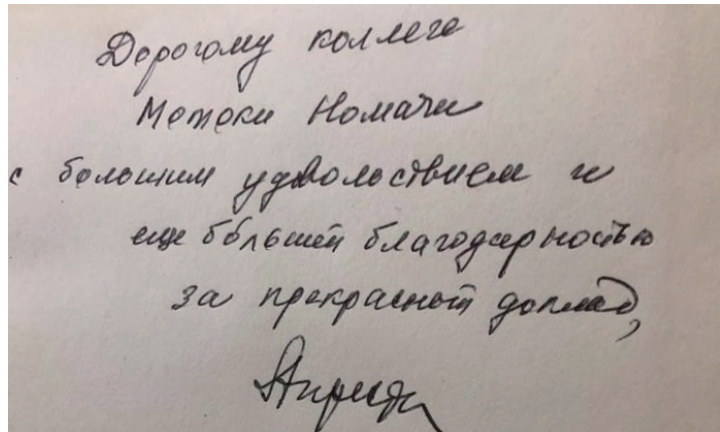 Дорогому коллеге
Мотоки Номачи
с большим удовольствием и
еще бо́льшей благодарностью
за прекрасный доклад,